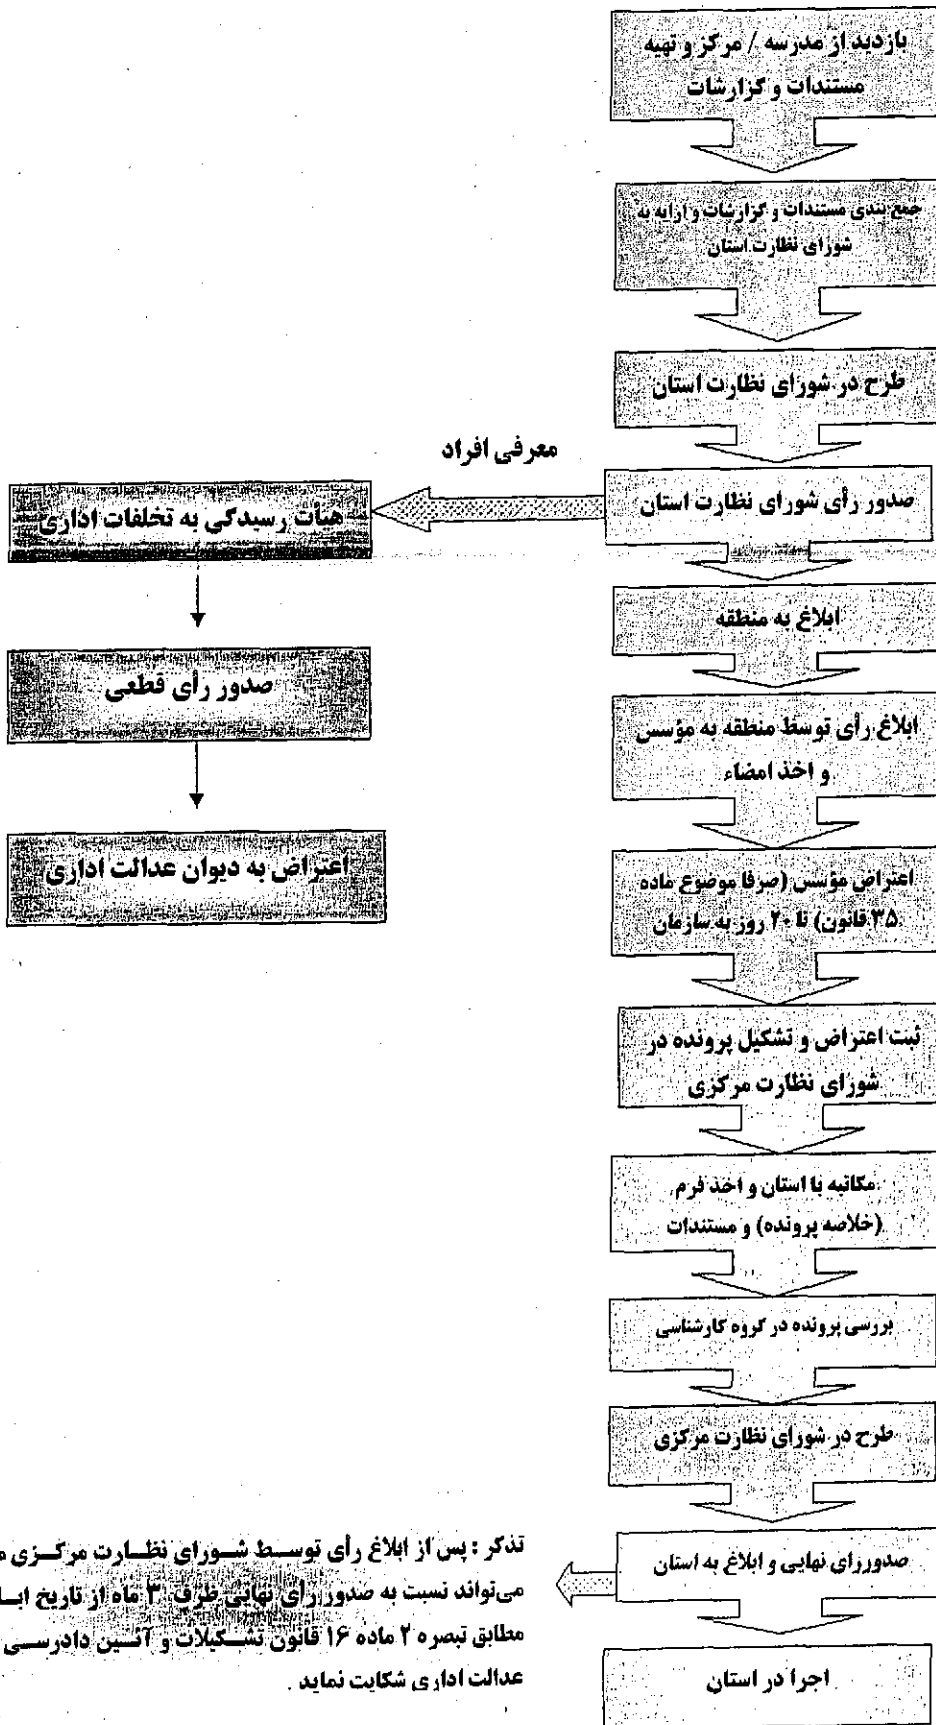 بازدید از مدرسه / مرکز و تهیه
مستندات و گزارشات
جمع بندی مستندات و گزارشات و ارایه به
شورای نظارت استان
طرح در شورای نظارت استان
صدور رأی شورای نظارت استان
معرفی افراد
هیأت رسیدگی به تخلفات اداری
صدور رأی قطعی
اعتراض به دیوان عدالت اداری
ابلاغ به منطقه
ابلاغ رأی توسط منطقه به مؤسس
و اخذ امضاء
اعتراض مؤسس (صرفا موضوع ماده
۳۵ قانون) تا ۲۰ روز به سازمان
ثبت اعتراض و تشکیل پرونده در
شورای نظارت مرکزی
مکاتبه با استان و اخذ فرم
(خلاصه پرونده) و مستندات
بررسی پرونده در گروه کارشناسی
طرح در شورای نظارت مرکزی
صدوررای نهایی و ابلاغ به استان
تذکر : پس از ابلاغ رأی توسط شورای نظارت مرکزی
می‌تواند نسبت به صدور رأی نهایی ظرف ۳ ماه از تاریخ
مطابق تبصره ۲ ماده ۱۶ قانون تشکیلات و آئین دادرسی
عدالت اداری شکایت نماید .
اجرا در استان